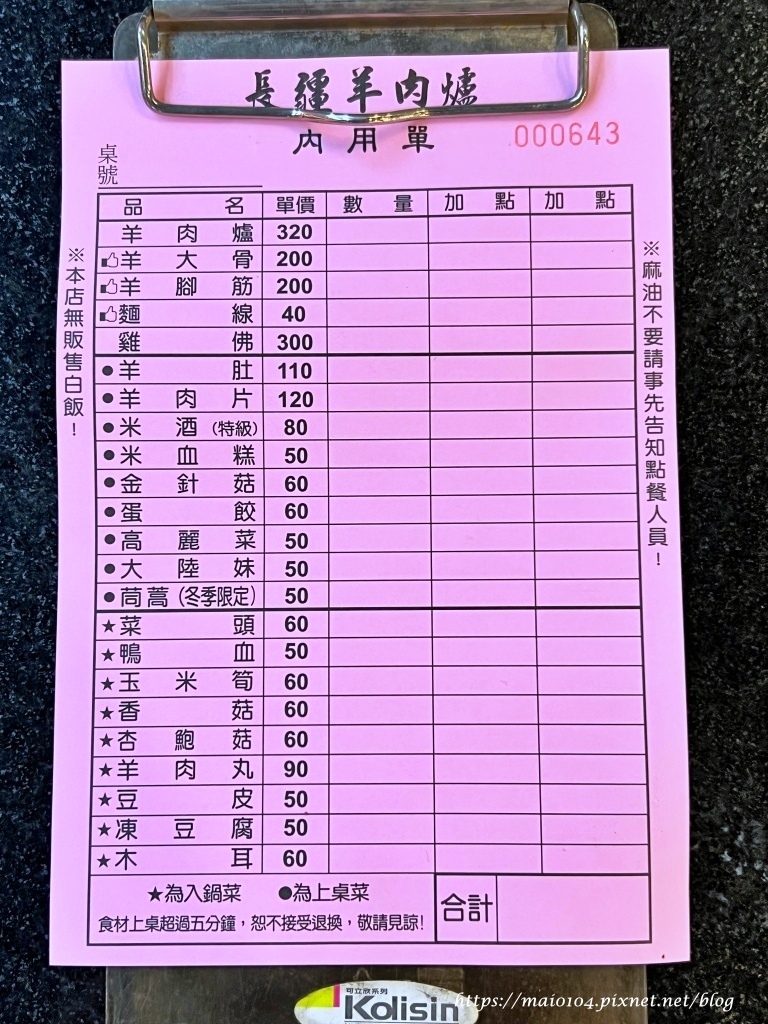 長疆羊肉爐
內用單
000643
桌號
※本店無販售白飯！
※麻油不要請事先告知點餐人員！
品名 單價 數量 加點 加點
羊肉爐 320
羊大骨 200
羊腳筋 200
麵線 40
雞佛 300
●羊肚 110
●羊肉片 120
●米酒(特級) 80
●米血糕 50
●金針菇 60
●蛋餃 60
●高麗菜 50
●大陸妹 50
●茼蒿(冬季限定) 50
★菜頭 60
★鴨血 50
★玉米筍 60
★香菇 60
★杏鮑菇 60
★羊肉丸 90
★豆皮 50
★凍豆腐 50
★木耳 60
★為入鍋菜 ●為上桌菜
食材上桌超過五分鐘，恕不接受退換，敬請見諒!
合計
可立欣系列
Kolisin
https://maio104.pixnet.net/blog